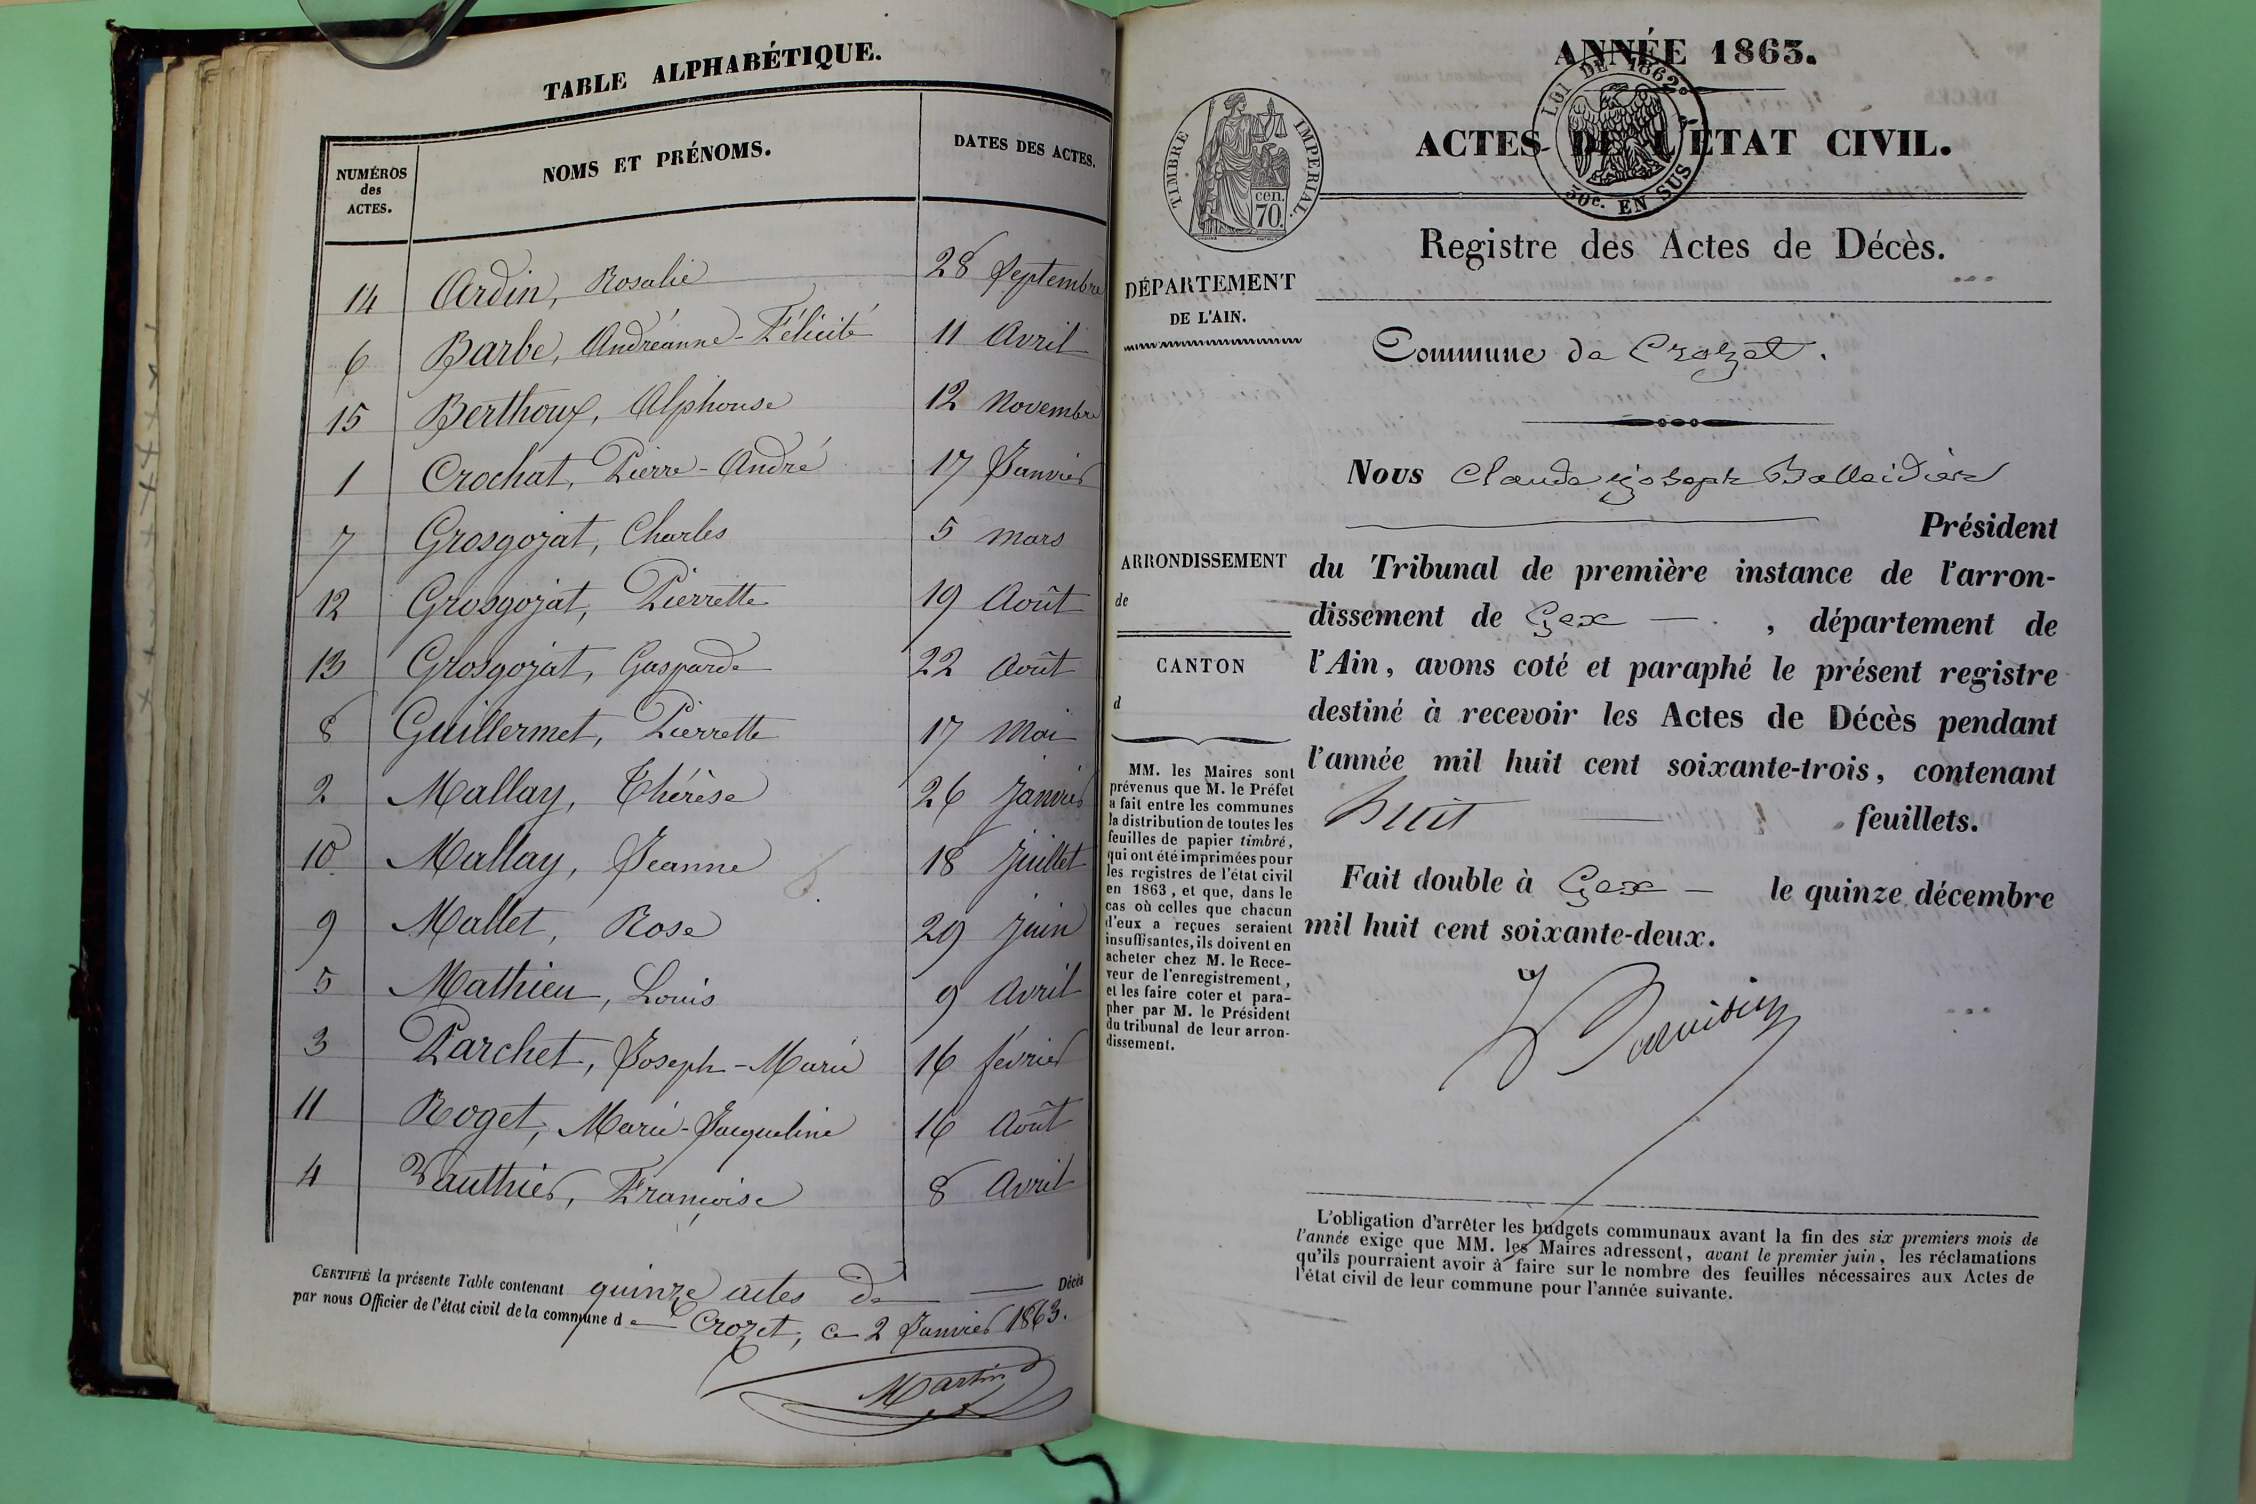 TABLE ALPHABÉTIQUE.
NUMÉROS des ACTES. NOMS ET PRÉNOMS. DATES DES ACTES.
14 Ardin, Rosalie 28 Septembre
6 Barbe, Andréanne-Félicité 11 Avril
15 Berthoux, Alphonse 12 Novembre
1 Crochat, Pierre-André 17 Janvier
7 Grosgojat, Charles 5 Mars
12 Grosgojat, Pierrette 19 Août
13 Grosgojat, Gasparde 22 Août
8 Guillermet, Pierrette 17 Mai
2 Mallay, Thérèse 26 Janvier
10 Mallay, Jeanne 18 Juillet
9 Mallet, Rose 29 Juin
5 Mathieu, Louis 9 Avril
3 Parchet, Joseph-Marie 16 février
11 Roget, Marie-Jacqueline 16 Août
4 Vauthier, Françoise 8 Avril
CERTIFIÉ la présente Table contenant quinze actes de Décès
par nous Officier de l'état civil de la commune de Crozet, ce 2 Janvier 1863.
Martin
ANNÉE 1863.
LOI DE 1862.
30c. EN SUS
TIMBRE IMPERIAL.
cen.
70.
ACTES DE L'ETAT CIVIL.
Registre des Actes de Décès.
DÉPARTEMENT
DE L'AIN.
Commune de Crozet.
Nous Claude Joseph Balleidier
Président
ARRONDISSEMENT
de
CANTON
d
du Tribunal de première instance de l'arron-
dissement de Gex — , département de
l'Ain, avons coté et paraphé le présent registre
destiné à recevoir les Actes de Décès pendant
l'année mil huit cent soixante-trois, contenant
huit feuillets.
Fait double à Gex — le quinze décembre
mil huit cent soixante-deux.
MM. les Maires sont
prévenus que M. le Préfet
a fait entre les communes
la distribution de toutes les
feuilles de papier timbré,
qui ont été imprimées pour
les registres de l'état civil
en 1863, et que, dans le
cas où celles que chacun
d'eux a reçues seraient
insuffisantes, ils doivent en
acheter chez M. le Rece-
veur de l'enregistrement,
et les faire coter et para-
pher par M. le Président
du tribunal de leur arron-
dissement.
L'obligation d'arrêter les budgets communaux avant la fin des six premiers mois de
l'année exige que MM. les Maires adressent, avant le premier juin, les réclamations
qu'ils pourraient avoir à faire sur le nombre des feuilles nécessaires aux Actes de
l'état civil de leur commune pour l'année suivante.